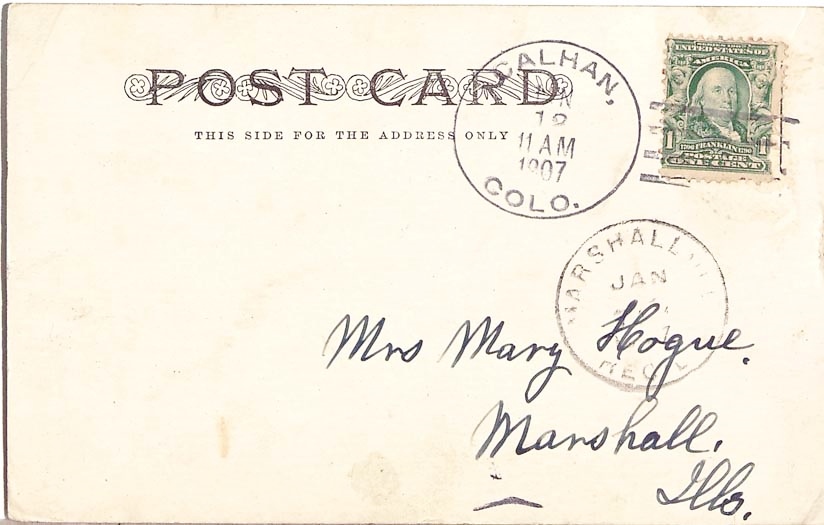 POST CARD
THIS SIDE FOR THE ADDRESS ONLY
CALHAN,
JAN
12
11 AM
1907
COLO.
SERIES 1902
UNITED STATES OF
AMERICA
1 1706 FRANKLIN 1790 1
POSTAGE
ONE CENT
MARSHALL
JAN
REC'D
Mrs Mary Hogue.
Marshall.
Ills.